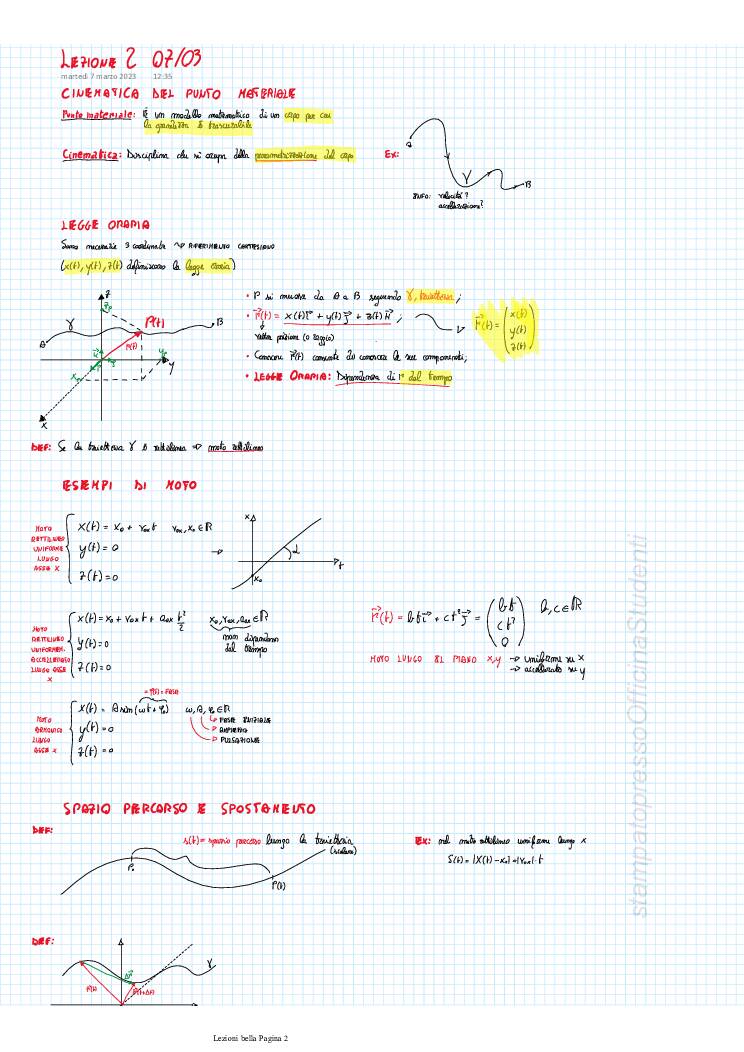 LEZIONE 2 07/03
martedì 7 marzo 2023 12:35
CINEMATICA DEL PUNTO MATERIALE
Punto materiale: È un modello matematico di un capo per cui
la grandezza è trascurabile
Cinematica: Disciplina che si occupa della parametrizzazione del capo
Ex:
A
γ
B
INFO: velocità?
accellerazione?
LEGGE ORARIA
Sono necessarie 3 coordinate ~> RIFERIMENTO CARTESIANO
(x(t), y(t), z(t) definiscono la legge oraria)
z
γ
P(t)
B
A
r(t)
y
x
• P si muove da A a B seguendo γ, traiettoria;
• r⃗(t) = x(t)i⃗ + y(t)j⃗ + z(t)k⃗ ;
r⃗(t) = (x(t) y(t) z(t))
vettor posizione (o raggio)
• Conoscere r⃗(t) consente di conoscere le sue componenti;
• LEGGE ORARIA: Dipendenza di r⃗ dal tempo
DEF: Se la traiettoria γ è rettilinea => moto rettilineo
ESEMPI DI MOTO
MOTO
RETTILINEO
UNIFORME
LUNGO
ASSE X
x(t) = x₀ + v₀ₓt v₀ₓ, x₀ ∈ ℝ
y(t) = 0
z(t) = 0
x
α
t
x₀
MOTO
RETTILINEO
UNIFORMEM.
ACCELLERATO
LUNGO ASSE
X
x(t) = x₀ + v₀ₓt + a₀ₓ t²/2 x₀, v₀ₓ, a₀ₓ ∈ ℝ
non dipendono
dal tempo
y(t) = 0
z(t) = 0
r⃗(t) = bt i⃗ + ct² j⃗ = (bt ct² 0) b, c ∈ ℝ
MOTO LUNGO IL PIANO x,y -> uniforme su x
-> accellerato su y
= φ(t) = FASE
MOTO
ARMONICO
LUNGO
ASSE X
x(t) = A sin(ωt + φ₀) ω, A, φ₀ ∈ ℝ
FASE INIZIALE
AMPIEZZA
PULSAZIONE
y(t) = 0
z(t) = 0
SPAZIO PERCORSO E SPOSTAMENTO
DEF:
s(t) = spazio percorso lungo la traiettoria
(scalare)
P₀
P(t)
Ex: nel moto rettilineo uniforme lungo x
S(t) = |X(t) - x₀| = |v₀ₓ| · t
DEF:
γ
r⃗(t)
r⃗(t+Δt)
stampatopressoOfficinaStudenti
Lezioni bella Pagina 2